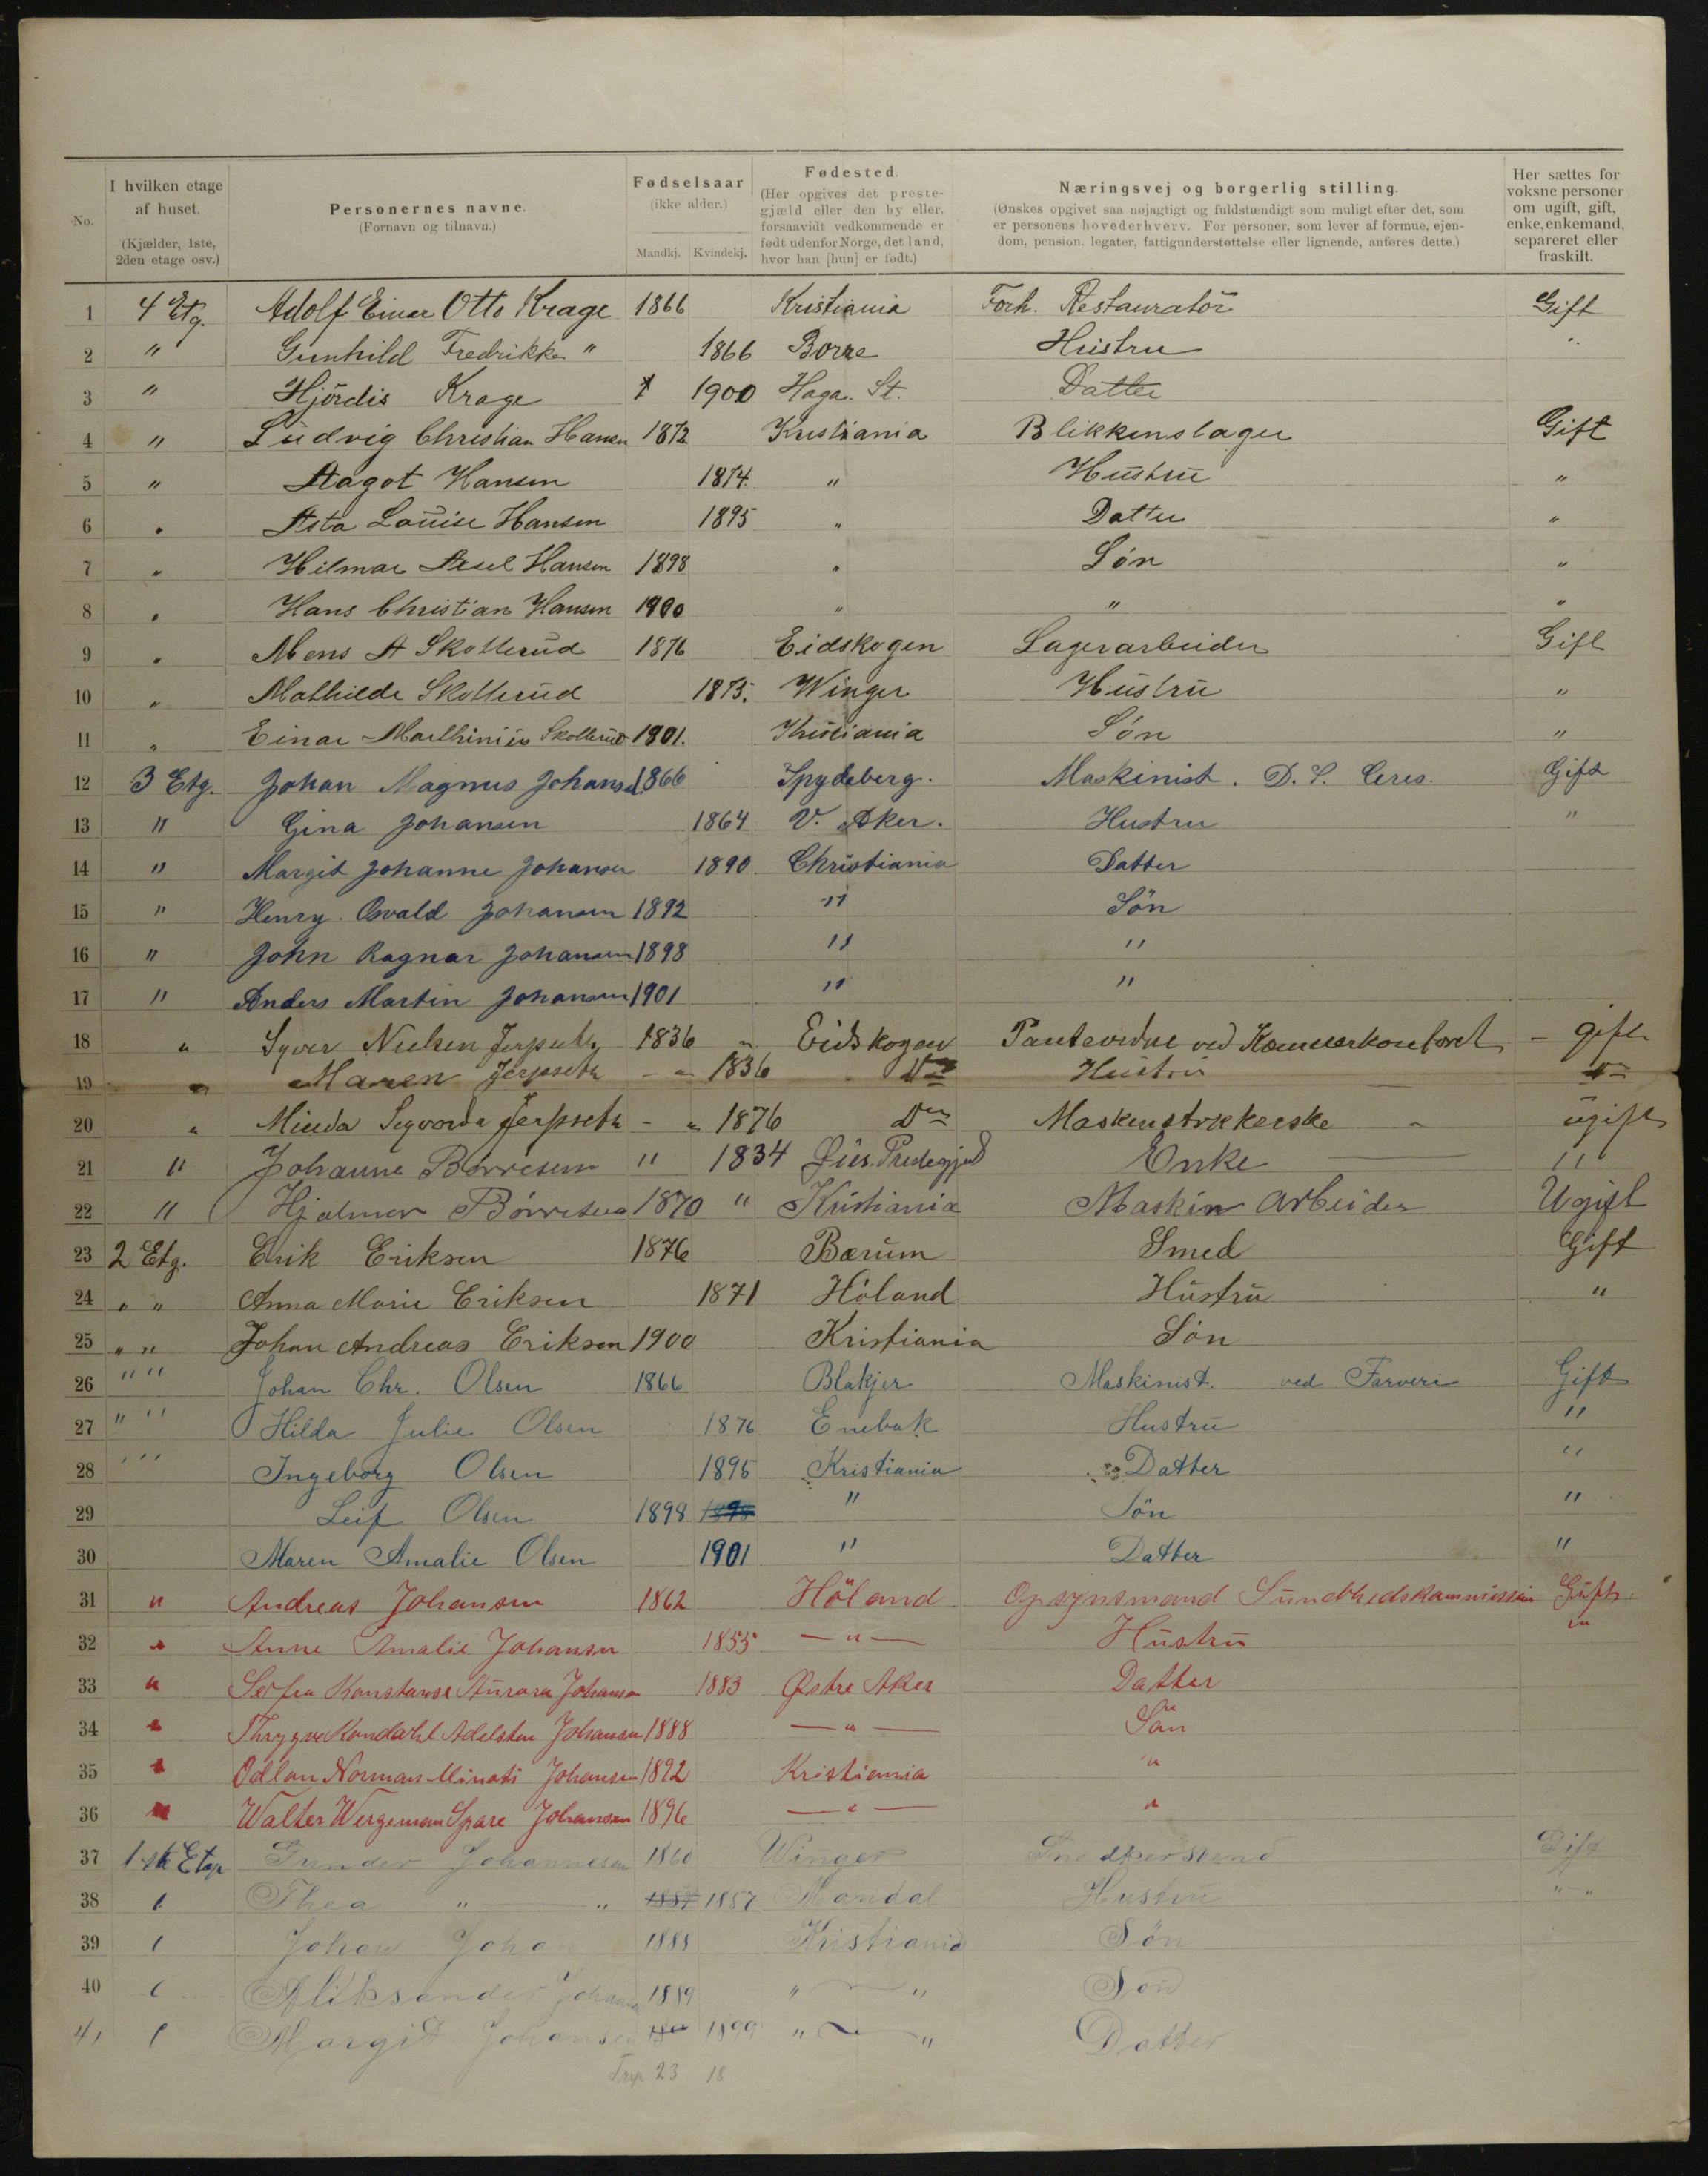 No.
I hvilken etage af huset.
(Kjælder, 1ste, 2den etage osv.)
Personernes navne.
(Fornavn og tilnavn.)
Fødselsaar
(ikke alder.)
Mandkj. Kvindekj.
Fødested.
(Her opgives det prestegjæld eller den by eller, forsaavidt vedkommende er født udenfor Norge, det land, hvor han [hun] er født.)
Næringsvej og borgerlig stilling.
(Ønskes opgivet saa nøjagtigt og fuldstændigt som muligt efter det, som er personens hovederhverv. For personer, som lever af formue, ejendom, pension, legater, fattigunderstøttelse eller lignende, anføres dette.)
Her sættes for voksne personer om ugift, gift, enke, enkemand, separeret eller fraskilt.
1 4 Etg. Adolf Einar Otto Krage 1866 Kristiania Forh. Restauratör Gift
2 " Gunhild Fredrikke " 1866 Borre Hustru "
3 " Hjördis Krage 1900 Haga. St. Datter
4 " Ludvig Christian Hansen 1872 Kristiania Blikkenslager Gift
5 " Aagot Hansen 1874 " Hustru "
6 " Asta Louise Hansen 1895 " Datter "
7 " Hilmar Axel Hansen 1898 " Søn "
8 " Hans Christian Hansen 1900 " " "
9 " Mens A Skotterud 1876 Eidskogen Lagerarbeider Gift
10 " Mathilde Skotterud 1875. Winger Hustru "
11 " Einar Skotterud 1901. Kristiania Søn "
12 3 Etg. Johan Magnus Johansen 1866 Spydeberg. Maskinist. D. S. Ceres. Gift
13 " Gina Johansen 1864 V. Aker. Hustru "
14 " Margit Johanne Johansen 1890 Christiania Datter
15 " Henry. Osvald Johansen 1892 " Sön
16 " John Ragnar Johansen 1898 " "
17 " Anders Martin Johansen 1901 " "
18 " Syver Nielsen Jerpseth 1836 " Eidskogen ved Kæmnerkontoret - gift
19 " Maren Jerpseth - " 1836 Do Hustru Do
20 " Jerpseth - " 1876 Do ugift
21 " Johanne Börresen " 1834 Enke "
22 " Hjalmar Börresen 1870 " Kristiania Maskin Arbeider Ugift
23 2 Etg. Erik Eriksen 1876 Bærum Smed Gift
24 " " Anna Marie Eriksen 1871 Höland Hustru "
25 " " Johan Andreas Eriksen 1900 Kristiania Sön
26 " " Johan Chr. Olsen 1866 Blakjer Maskinist. ved Farveri Gift
27 " " Hilda Julie Olsen 1876 Enebak Hustru "
28 " " Ingeborg Olsen 1895 Kristiania Datter "
29 Leif Olsen 1898 1898 " Sön "
30 Maren Amalie Olsen 1901 " Datter "
31 " Andreas Johansen 1862 Höland Opsynsmand Sundhedskommission Gift.
32 " Anne Amalie Johansen 1855 — " — Hustru "
33 " Konstanse Aurora Johansen 1883 Østre Aker Datter
34 " Adelsten Johansen 1888 — " — Sön
35 " Odlan Norman Johansen 1892 Kristiania "
36 " Walter Wergeman Spare Johansen 1896 — " — "
37 1ste Etage Gunder Johannesen 1860 Winger Snedkersvend Gift
38 " Thea " — " 1857 1857 Mandal Hustru " - "
39 " Johan Johan 1888 Kristiania Sön
40 " Aliksander Johansen 1889 " — " Sön
41 " Margit Johansen 1899 " — " Datter
23 18